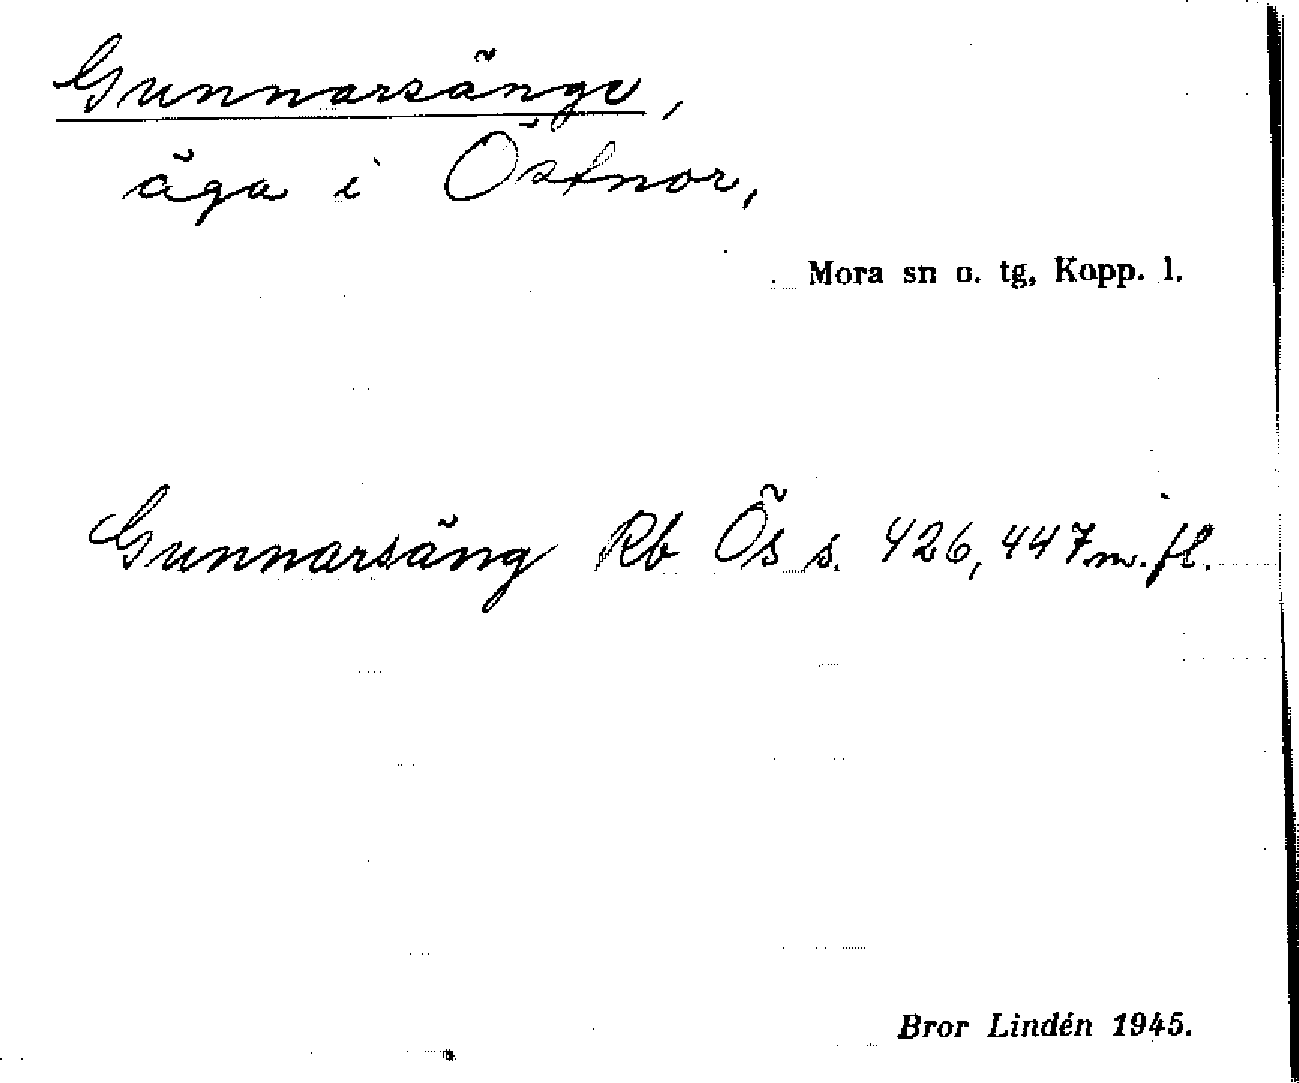 Gunnarsänge,
äga i Östnor,
Mora sn o. tg, Kopp. l.
Gunnarsäng Rb Ös s. 426, 447 m. fl.
Bror Lindén 1945.